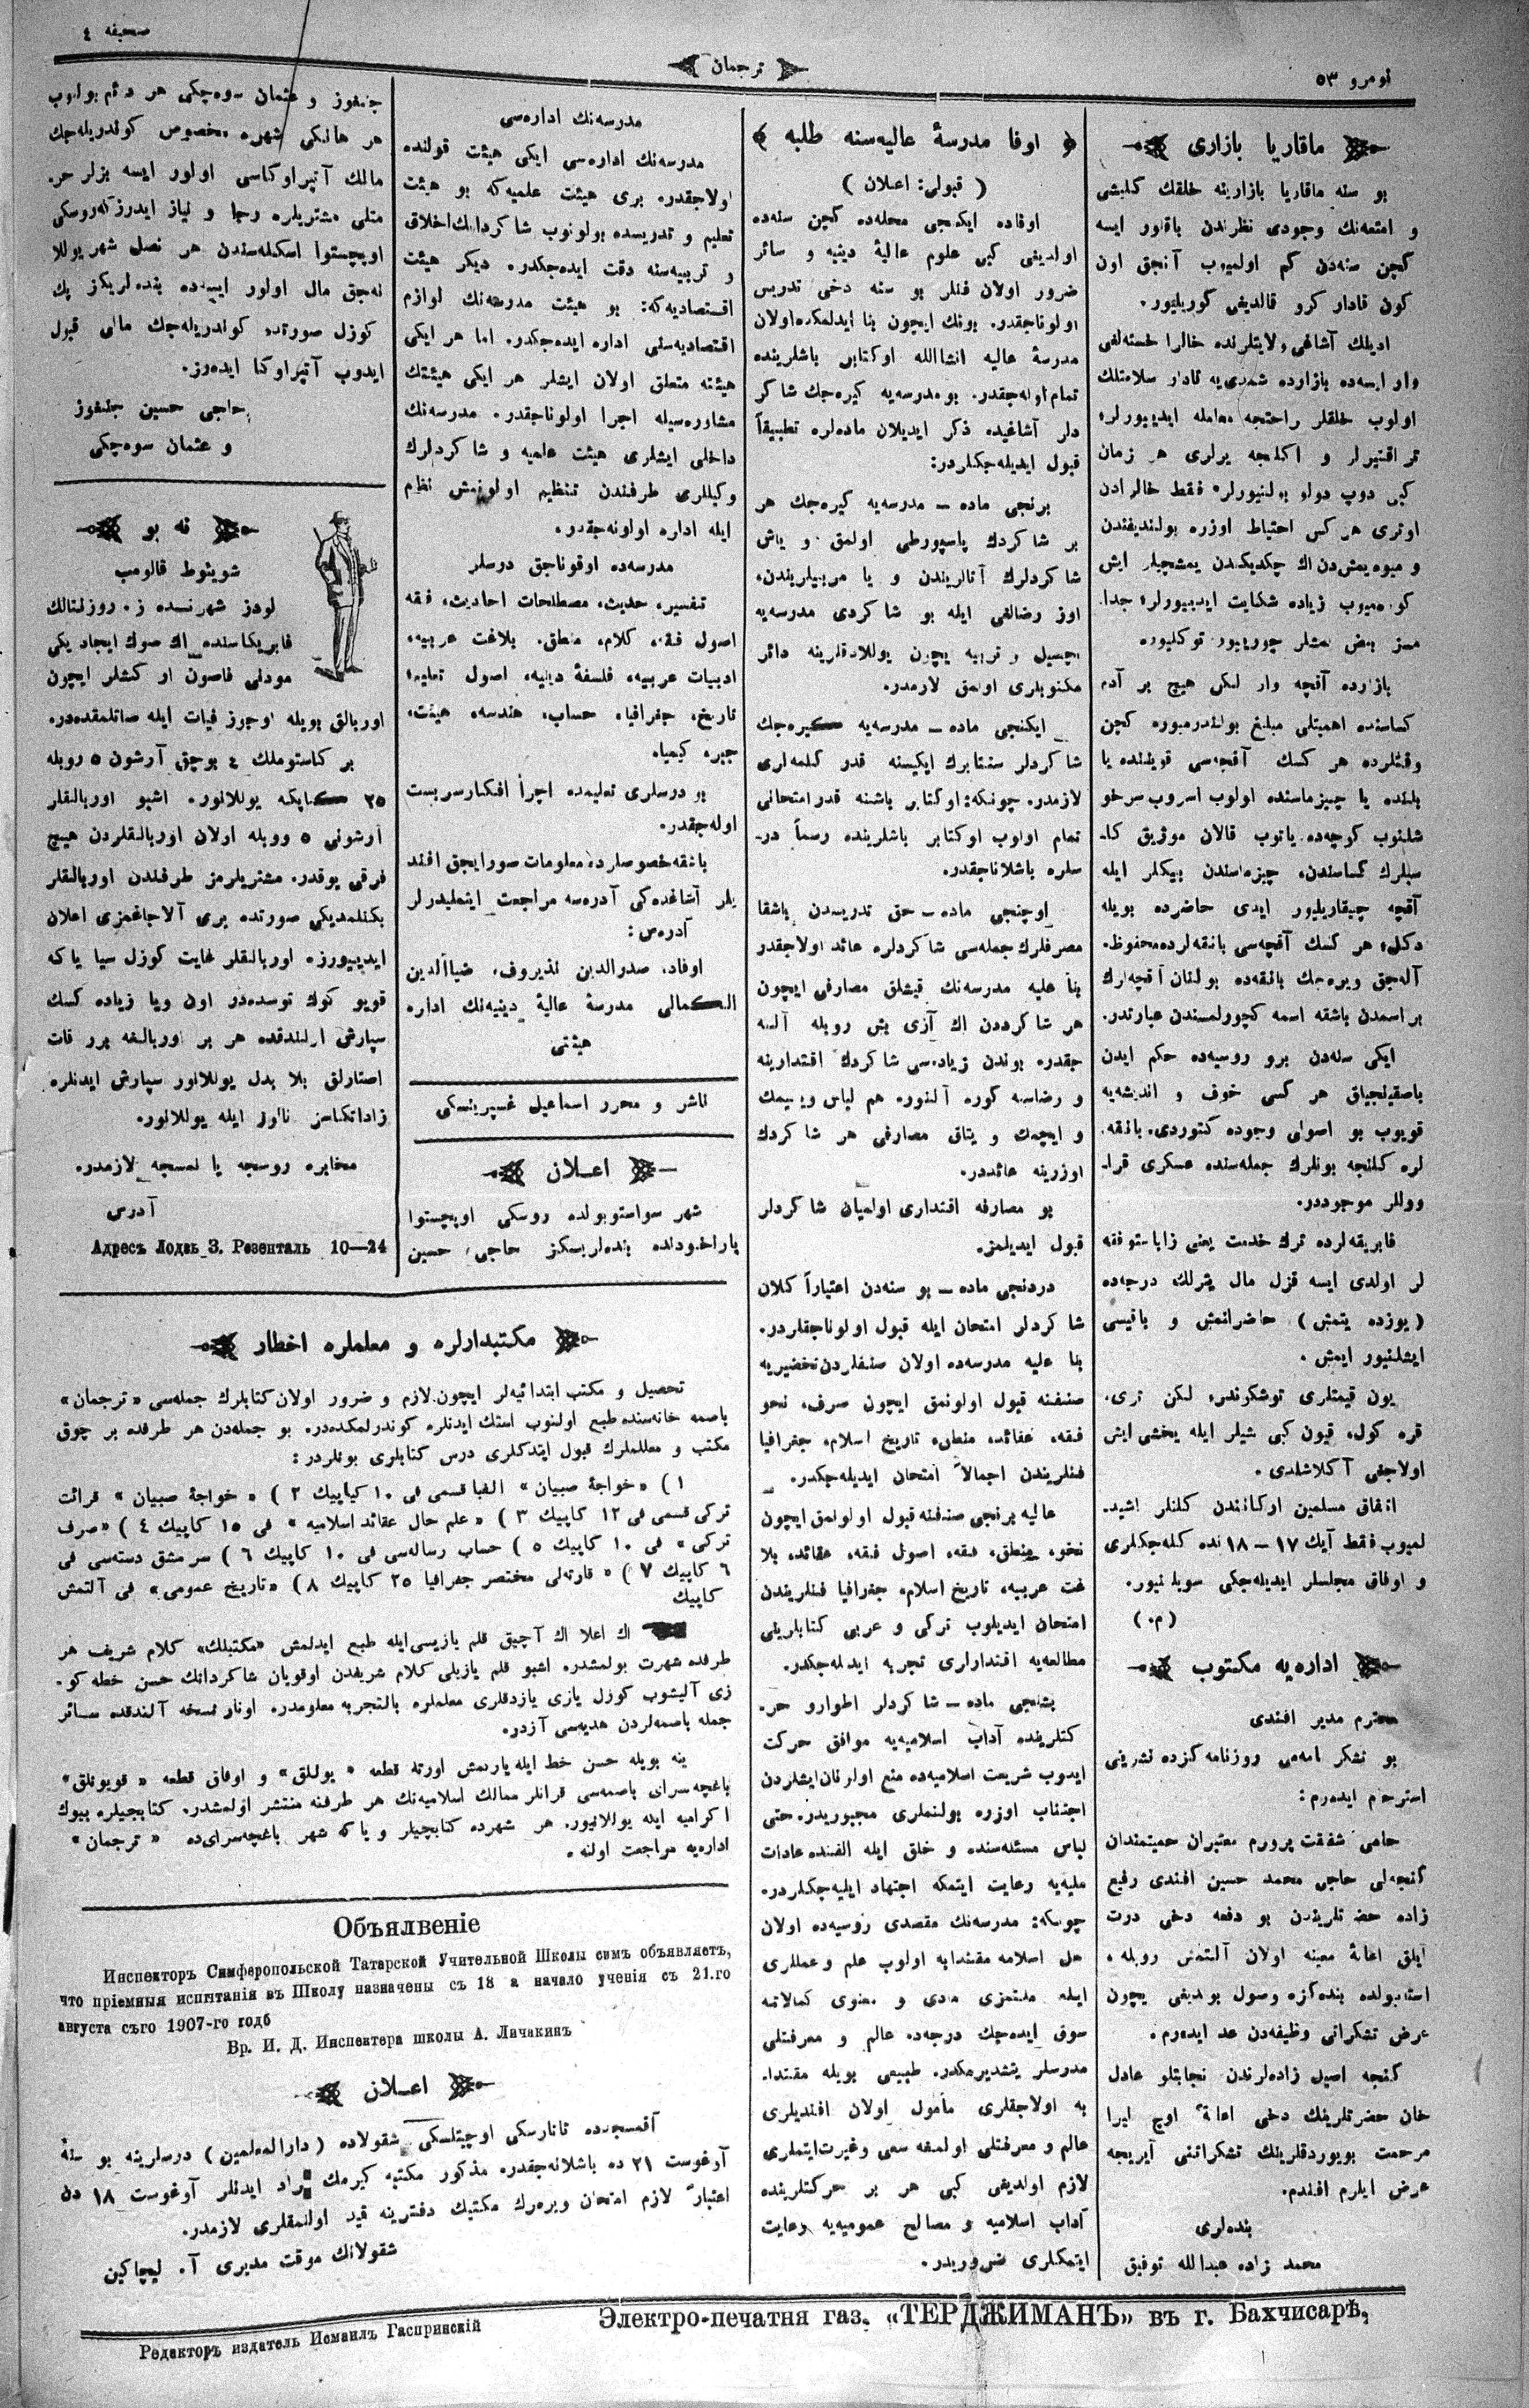 نومرو ٥٣
ترجمان
صحیفه ٤
ماقاریا بازاری
بو سنه ماقاریا بازارینه خلقك كلیشی
و امتعه‌نك وجودی نظرندن باقنور ایسه
كچن سنه‌دن كم اولمیوب آنجق اون
كون قادار كرو قالدیغی كوریلیور.
ایدیلك آشاغی ولایتلرنده خالرا خسته‌لغی
وار ایسه‌ده بازارده شمدی‌یه قادار سلامتلك
اولوب خلقلر راحتجه معامله ایدییورلر؛
تراقتیرلر و اكلنجه یرلری هر زمان
كبی دوپ دولو بولنیورلر. فقط خالرادن
اوتری هر كس احتیاط اوزره بولندیغندن
و میوه یمش‌دن ال چكدیكندن یمشجیلر ایش
بازارده آقچه وار لكن هیچ بر آدم
كساسنده اهمیتلی مبلغ بولندرمیور. كچن
وقتلرده هر كسك آقچه‌سی قویننده یا
بلنده یا چیزماسنده اولوب اسروب سرخو
شلنوب كوچه‌ده یاتوب قالان موژیق كا-
سبلرك كساسندن، چیزماسندن بیكلر ایله
آقچه چیقاریلیور ایدی حاضرده بویله
دكل؛ هر كسك آقچه‌سی بانقه‌لرده محفوظ.
آله‌جق ویره‌جك بانقه‌ده بولنان آقچه‌لرك
بر اسمدن باشقه اسمه كچورلمسندن عبارتدر.
ایكی سنه‌دن برو روسیه‌ده حكم ایدن
باصقینجیاق هر كسی خوف و اندیشه‌یه
قویوب بو اصولی وجوده كتوردی. بانقه.
لره كلنجه بونلرك جمله‌سنده عسكری قرا-
ووللر موجوددر.
فابریقه‌لرده ترك خدمت یعنی زاباستوفقه
لر اولدی ایسه قزل مال یترلك درجه‌ده
(یوزده یتمش) حاضرلنمش و باقیسی
ایشلنیور ایمش.
یون قیمتلری توشكرندر، لكن تری،
قره كول، قیون كبی شیلر ایله یخشی ایش
اولاجغی آكلاشلدی.
اتفاق مسلمین اوكاتندن كلنلر اشید-
لمیوب فقط آیك ١٧ – ١٨ نده كله‌جكلری
و اوفاق مجلسلر ایدیله‌جكی سویلنیور.
(م.)
اداره‌یه مكتوب
محترم مدیر افندی
بو تشكر نامه‌می روزنامه كزده نشرینی
استرحام ایده‌رم:
حامی شفقت پرورم معتبران حمیتمندان
كنجه‌لی حاجی محمد حسین افندی رفیع
زاده حضرتلریندن بو دفعه دخی درت
آیلق اعانهٔ معینه اولان آلتمش روبله.
استانبولده بنده‌كزه وصول بولدیغی یچون
عرض تشكراتی وظیفه‌دن عد ایده‌رم.
كنجه اصیل زاده‌لرندن نجابتلو عادل
خان حضرتلرینك دخی اعانهٔ اوچ لیرا
مرحمت بویوردقلرینك تشكراتنی آیریجه
عرض ایلرم افندم.
بنده‌لری
محمد زاده عبدالله توفیق
﴿ اوفا مدرسهٔ عالیه‌سنه طلبه ﴾
(قبولی: اعلان)
اوفاده ایكنجی محله‌ده كچن سنه‌ده
اولدیغی كبی علوم عالیهٔ دینیه و سائر
ضرور اولان فنلر بو سنه دخی تدریس
اولوناجقدر. بونك ایچون بنا ایدلمكده اولان
مدرسهٔ عالیه انشاالله اوكتابر باشلرینده
تمام اوله‌جقدر. بو مدرسه‌یه كیره‌جك شاكر
دلر آشاغیده ذكر ایدیلان ماده‌لره تطبیقاً
قبول ایدیله‌جكلردر:
برنجی ماده – مدرسه‌یه كیره‌جك هر
بر شاكردك پاسپورطی اولمق و یاش
شاكردلرك آتالریندن و یا مربیلریندن،
اوز رضالغی ایله بو شاكردی مدرسه‌یه
تحصیل و تربیه یچون یوللادقلرینه دائر
مكتوبلری اولمق لازمدر.
ایكنجی ماده – مدرسه‌یه كیره‌جك
شاكردلر سنتابرك ایكیسنه قدر كلمه‌لری
لازمدر. چونكه: اوكتابر باشنه قدر امتحانی
تمام اولوب اوكتابر باشلرینده رسماً در-
سلره باشلاناجقدر.
اوچنجی ماده – حق تدریسدن باشقا
مصرفلرك جمله‌سی شاكردلره عائد اولاجقدر
بنا علیه مدرسه‌نك قیشلق مصارفی ایچون
هر شاكرددن اك آزی بش روبله آلنه
جقدر. بوندن زیاده‌سی شاكردك اقتدارینه
و رضاسنه كوره آلنور. هم لباس ویییمك
و ایچمك و یتاق مصارفی هر شاكردك
اوزرینه عائددر.
بو مصارفه اقتداری اولمیان شاكردلر
قبول ایدیلمز.
دردنجی ماده – بو سنه‌دن اعتباراً كلان
شاكردلر امتحان ایله قبول اولوناجقلردر.
بنا علیه مدرسه‌ده اولان صنفلردن تحضیریه
صنفنه قبول اولونمق ایچون صرف، نحو
فقه، عقائد، منطق، تاریخ اسلام، جغرافیا
فنلریندن اجمالاً امتحان ایدیله‌جكدر.
عالیه برنجی صنفنه قبول اولونمق ایچون
نحو، منطق، فقه، اصول فقه، عقائد، بلا
غت عربیه، تاریخ اسلام، جغرافیا فنلریندن
امتحان ایدیلوب تركی و عربی كتابلرینی
مطالعه‌یه اقتدارلری تجربه ایدیله‌جكدر.
بشنجی ماده – شاكردلر اطوار و حر-
كتلرینده آداب اسلامیه‌یه موافق حركت
ایدوب شریعت اسلامیه‌ده منع اولرنان ایشلردن
اجتناب اوزره بولنملری مجبوریدر. حتی
لباس مسئله‌سنده و خلق ایله الفتده عادات
ملیه‌یه رعایت ایتمكه اجتهاد ایلیه‌جكلردر.
چونكه: مدرسه‌نك مقصدی روسیه‌ده اولان
اهل اسلامه مقتدابه اولوب علم و عمللری
ایله ملتمزی مادی و معنوی كمالاته
سوق ایده‌جك درجه‌ده عالم و معرفتلی
مدرسلر یتشدیرمكدر. طبیعی بویله مقتدا-
به اولاجقلری مأمول اولان افندیلری
عالم و معرفتلی اولمغه سعی وغیرت ایتملری
لازم اولدیغی كبی هر بر حركتلرینده
آداب اسلامیه و مصالح عمومیه‌یه رعایت
ایتمكلری ضروریدر.
مدرسه‌نك اداره‌سی
مدرسه‌نك اداره‌سی ایكی هیئت قولنده
اولاجقدر. بری هیئت علمیه‌كه بو هیئت
تعلیم و تدریسده بولونوب شاكردانك اخلاق
و تربیه‌سنه دقت ایده‌جكدر. دیكر هیئت
اقتصادیه‌كه: بو هیئت مدرسه‌نك لوازم
اقتصادیه‌سنی اداره ایده‌جكدر. اما هر ایكی
هیئته متعلق اولان ایشلر هر ایكی هیئتك
مشاوره‌سیله اجرا اولوناجقدر. مدرسه‌نك
داخلی ایشلری هیئت علمیه و شاكردلرك
وكیللری طرفندن تنظیم اولونمش نظام
ایله اداره اولونه‌جقدر.
مدرسه‌ده اوقوناجق درسلر
تفسیر، حدیث، مصطلحات احادیث، فقه
اصول فقه، كلام، منطق، بلاغت عربیه،
ادبیات عربیه، فلسفهٔ دینیه، اصول تعلیم؛
تاریخ، جغرافیا، حساب، هندسه، هیئت،
جبر، كیمیا.
بو درسلری تعلیمده اجرأ افكار سربست
اوله‌جقدر.
باشقه خصوصلرده معلومات صورایجق افند
یلر آشاغده‌كی آدره‌سه مراجعت ایتملیدرلر
آدره‌س:
اوفاد، صدرالدین نذیروف، ضیاألدین
الكمالی مدرسهٔ عالیهٔ دینیه‌نك اداره
هیئتی
ناشر و محرر اسماعیل غسپرینسكی
اعـلان
شهر سواستوبولده روسكی اوبچستوا
پاراخودنده بنده‌لریكز حاجی حسین
جنغوز و عثمان سوه‌چكی هر دائم بولنوب
هر هانكی شهره مخصوص كوندریله‌جك
مالك آتپراوكاسی اولور ایسه بزلر حر.
متلی مشتریلره رجا و نیاز ایدرزكه روسكی
اوبچستوا اسكله‌سندن هر نصل شهر یوللا
نه‌جق مال اولور ایسه‌ده بنده‌لریكز پك
كوزل صورتده كوندریله‌جك مالی قبول
ایدوب آتپراوكا ایده‌رز.
حاجی حسین جنغوز
و عثمان سوه‌چكی
نه بو
شویوط قالومب
لودز شهرنده ز. روزلنتالك
فابریكاسنده اك صوك ایجاد یكی
مودلی فاصون ار كشلر ایچون
اوربالق بویله اوجوز فیات ایله صاتلمقده‌در.
بر كاستوملك ٤ بوچق آرشون ٥ روبله
٢٥ كاپكه یوللانور. اشبو اوربالقلر
آرشونی ٥ روبله اولان اوربالقلردن هیچ
فرقی یوقدر. مشتریلرمز طرفندن اوربالقلر
بكنلمدیكی صورتده بری آلاجاغمزی اعلان
ایدییورز. اوربالقلر غایت كوزل سیا یا كه
قویو كوك توسده‌در اون ویا زیاده كسك
سپارش ارلندقده هر بر اوربالغه برر قات
استارلق بلا بدل یوللانور سپارش ایدنلره
زاداتكاسز نالوژ ایله یوللانور.
مخابره روسجه یا نمسجه لازمدر.
آدرس
Адресъ Лодзь З. Розенталь 10—24
مكتبدارلره و معلملره اخطار
تحصیل و مكتب ابتدائیه‌لر ایچون لازم و ضرور اولان كتابلرك جمله‌سی «ترجمان»
باصمه خانه‌سنده طبع اولنوب استك ایدنلره كوندرلمكده‌در. بو جمله‌دن هر طرفده بر چوق
مكتب و معلملرك قبول ایتدكلری درس كتابلری بونلردر:
١) «خواجهٔ صبیان» الفبا قسمی فی ١٠ كپاپیك ٢) «خواجهٔ صبیان» قرائت
تركی قسمی فی ١٢ كاپیك ٣) «علم حال عقائد اسلامیه» فی ١٥ كاپیك ٤) «صرف
تركی» فی ١٠ كاپیك ٥) حساب رساله‌سی فی ١٠ كاپیك ٦) سر مشق دسته‌سی فی
٦ كاپیك ٧) «قارته‌لی مختصر جغرافیا ٢٥ كاپیك ٨) «تاریخ عمومی» فی آلتمش
كاپیك
اك اعلا اك آچیق قلم یازیسی ایله طبع ایدلمش «مكتبلك» كلام شریف هر
طرفده شهرت بولمشدر. اشبو قلم یازیلی كلام شریفدن اوقویان شاكردانك حسن خطه كو-
زی آلیشوب كوزل یازی یازدقلری معلملره بالتجربه معلومدر. اونار نسخه آلندقده سـائر
جمله باصمه‌لردن هدیه‌سی آزدر.
ینه بویله حسن خط ایله یازیمش اورته قطعه «یوللق» و اوفاق قطعه «قویونلق»
باغچه‌سرای باصمه‌سی قرانلر ممالك اسلامیه‌نك هر طرفنه منتشر اولمشدر. كتابجیلره بیوك
اكرامیه ایله یوللانیور. هر شهرده كتابچیلر و یا كه شهر باغچه‌سرای‌ده «ترجمان»
اداره‌یه مراجعت اولنه.
Объялвеніе
Инспекторъ Симферопольской Татарской Учительной Школы симъ объявляетъ,
что пріемныя испытанія въ Школу назначены съ 18 а начало ученія съ 21.го
августа съго 1907-го годб
Вр. И. Д. Инспектера школы А. Личакинъ
اعـلان
آقمسجدده تاتارسكی اوچیتلسكی شقولاده (دارالمعلمین) درسلرینه بو سنهٔ
آوغوست ٢١ ده باشلانه‌جقدر. مذكور مكتبه كیرمك مراد ایدنلر آوغوست ١٨ دن
اعتباراً لازم امتحان ویره‌رك مكتبك دفترینه قید اولنمقلری لازمدر.
شقولانك موقت مدیری آ. لیچاكین
Электро-печатня газ. «ТЕРДЖИМАНЪ» въ г. Бахчисарѣ,
Редакторъ издатель Исмаилъ Гаспринскій